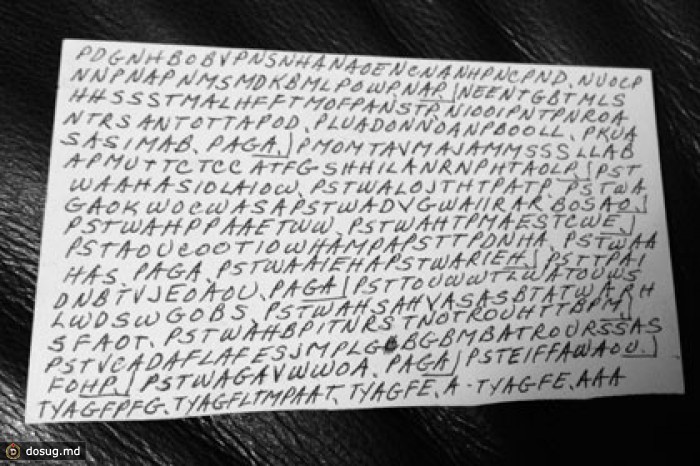 PDGNHBOBVPNSNHANAOENCNANHPNCPND, NUOCP
NNPNAPNMSMDKBMLPOWPNAP,|NEENTGBTMLS
HHSSSTMALHFFTMOFPANSTP,NIOOIPNTPNROA
NTRSANTOTTAPOD, PLUADONNOANPBOOLL, PKUA
SASIMAB, PAGA,|PMOMTAVMAJAMMSSSLLAB
APMUTTCTCCATFGSHHILANRNPHTAOLP,|PST
WAAHASIOLAIOW, PSTWALOJTHTPATP, PSTWA
GAOKWOCWASAPSTWADVGWAIIRAR, BOSAO,|
PSTWAHPPAAETWW, PSTWAHTPMAESTCWE,|
PSTAOUCOOTIOWHAMPAPSTTPDNHA, PSTWAA
HAS, PAGA, PSTWAAIEHAPSTWARIEH|PSTTPAI
DNBTVJEOAOU, PAGA|PSTTOUWWTLWATOUWS
LWDSWGOBS, PSTWAHSAHVASASBTATWARH
SFAOT, PSTWAHBPITNRSTNOTROUHTTBPM,|
PSTVCADAFLAFESJMPLGOBGBMBATROURSSAS
FOHP,|PSTWAGAVWWOA, PAGA|PSTEIFFAWAOU,|
TYAGFPFG, TYAGFLTMPAAT, TYAGFE, A-TYAGFE, AAA
dosug.md